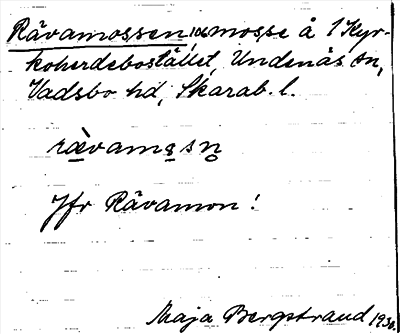 Rävamossen, mosse å 1 Kyr-
koherdebostället, Undenäs sn,
Vadsbo hd, Skarab. l.
Jfr Rävamon!
Maja Bergstrand 1930.